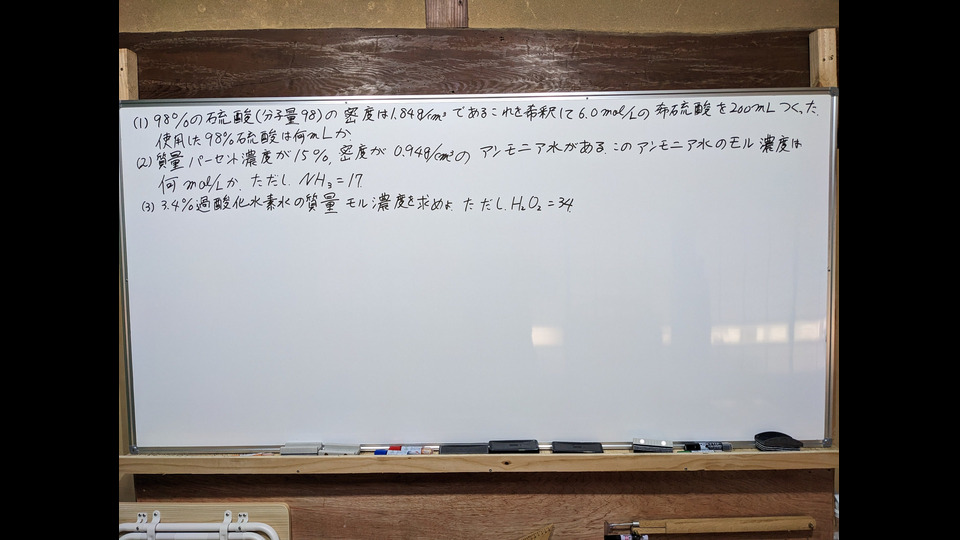 (1) 98%の硫酸(分子量98)の密度は1.84g/cm³であるこれを希釈して6.0mol/Lの希硫酸を200mLつくった.
使用した98%硫酸は何mLか
(2) 質量パーセント濃度が15%,密度が0.94g/cm³のアンモニア水がある このアンモニア水のモル濃度は
何mol/Lか.ただし,NH₃=17.
(3) 3.4%過酸化水素水の質量モル濃度を求めよ.ただし,H₂O₂=34.